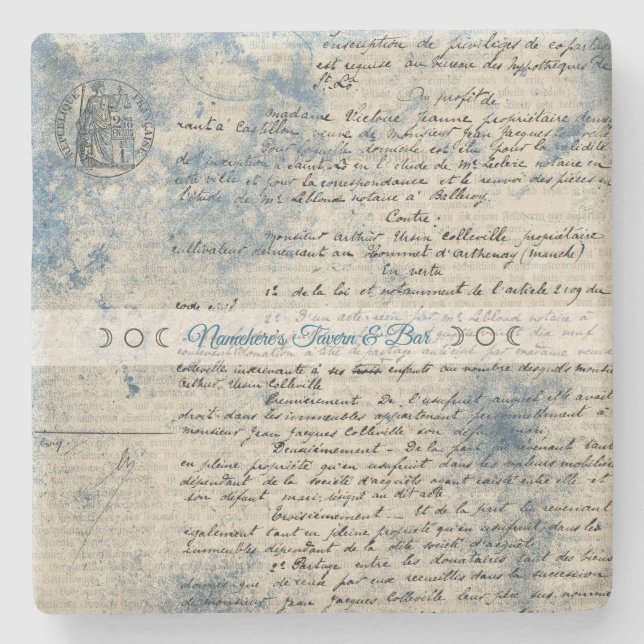 Inscription de privilèges de copartage
est requise au bureau des hypothèques de
St Lo
Au profit de
madame Victoire Jeanne propriétaire demeu
rant à Castillon, veuve de monsieur Jean Jacques Colleville
Pour laquelle domicile est élu pour la validité
de l'inscription à Saint-Lô en l'étude de Me Leclerc notaire en
cette ville et pour la correspondance et le renvoi des pièces en
l'étude de Me Leblond notaire à Balleroy.
Contre
monsieur Arthur Ursin Colleville propriétaire
cultivateur demeurant au Hommet d'Arthenay (manche)
En vertu
1º de la loi et notamment de l'article 2109 du
code
2º D'un acte reçu par Me Leblond notaire à
dix neuf
Donation à titre de partage anticipé par madame veuve
Colleville inscrivante à ses trois enfants au nombre desquels monsieur
Arthur Ursin Colleville
Premièrement. De l'usufruit auquel elle avait
droit dans les immeubles appartenant personnellement à
monsieur Jean Jacques Colleville son défunt mari
Deuxièmement - De la part lui revenant tant
en pleine propriété qu'en usufruit dans les valeurs mobilières
dépendant de la société d'acquêts ayant existé entre elle et
son défunt mari, désigné au dit acte
Troisièmement - Et de la part lui revenant
également tant en pleine propriété qu'en usufruit dans les
immeubles dépendant de la dite société d'acquêts
2º Partage entre les donataires tant des biens
donnés que de ceux par eux recueillis dans la succession
de monsieur Jean Jacques Colleville leur père sus-nommé
REPUBLIQUE FRANCAISE
Namehere's Tavern & Bar